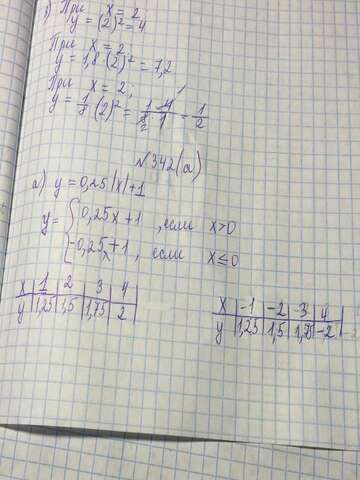 в) При x = 2
y = (2)² = 4
При x = 2
y = 1,8 (2)² = 7,2
При x = 2,
y = 1/8 (2)² = 1·4/8·1 = 1/2
№342(а)
а) y = 0,25|x|+1
y = { 0,25x + 1, если x > 0
-0,25x + 1, если x ≤ 0
x | 1 | 2 | 3 | 4
y | 1,25 | 1,5 | 1,75 | 2
x | -1 | -2 | -3 | 4
y | 1,25 | 1,5 | 1,75 | -2